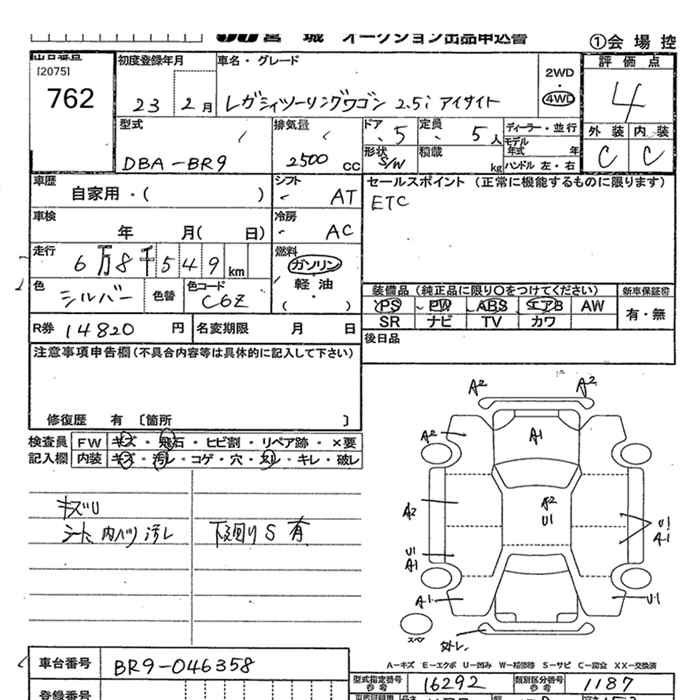 宮城 オークション出品申込書
①会場控
出品番号 初度登録年月 車名・グレード 評価点
[2075]
762
23 2月 レガシィツーリングワゴン 2.5i アイサイト
2WD
・
4WD
4
型式 排気量 ドア 定員 ディーラー・並行 外装 内装
DBA-BR9 2500 CC 5 5人
形状 S/W 積載 kg
モデル年式 年
ハンドル 左・右
C C
車歴 自家用・( ) シフト AT
セールスポイント (正常に機能するものに限ります)
ETC
車検 年 月( 日) 冷房 AC
走行 6万8千549km
燃料 ガソリン
軽油
( ・ )
色 シルバー 色替 色コード C6Z
装備品 (純正品に限り○をつけてください) 新車保証書
PS PW ABS エアB AW 有・無
SR ナビ TV カワ
R券 14820円 名変期限 月 日
後日品
注意事項申告欄(不具合内容等は具体的に記入して下さい)
修復歴 有 [箇所 ]
検査員 FW キズ・飛石・ヒビ割・リペア跡・×要
記入欄 内装 キズ・汚レ・コゲ・穴・ヌレ・キレ・破レ
キズU
シート、内バリ汚レ 下廻りS有
A2 A2
A2 A1
A2 A2 U1 U1 A1
U1 A1
A1 U1
スペア
A-キズ E-エクボ U-凹み W-補修跡 S-サビ C-腐食 XX-交換済
車台番号 BR9-046358
型式指定番号 参考 16292 類別区分番号 参考 1187
登録番号